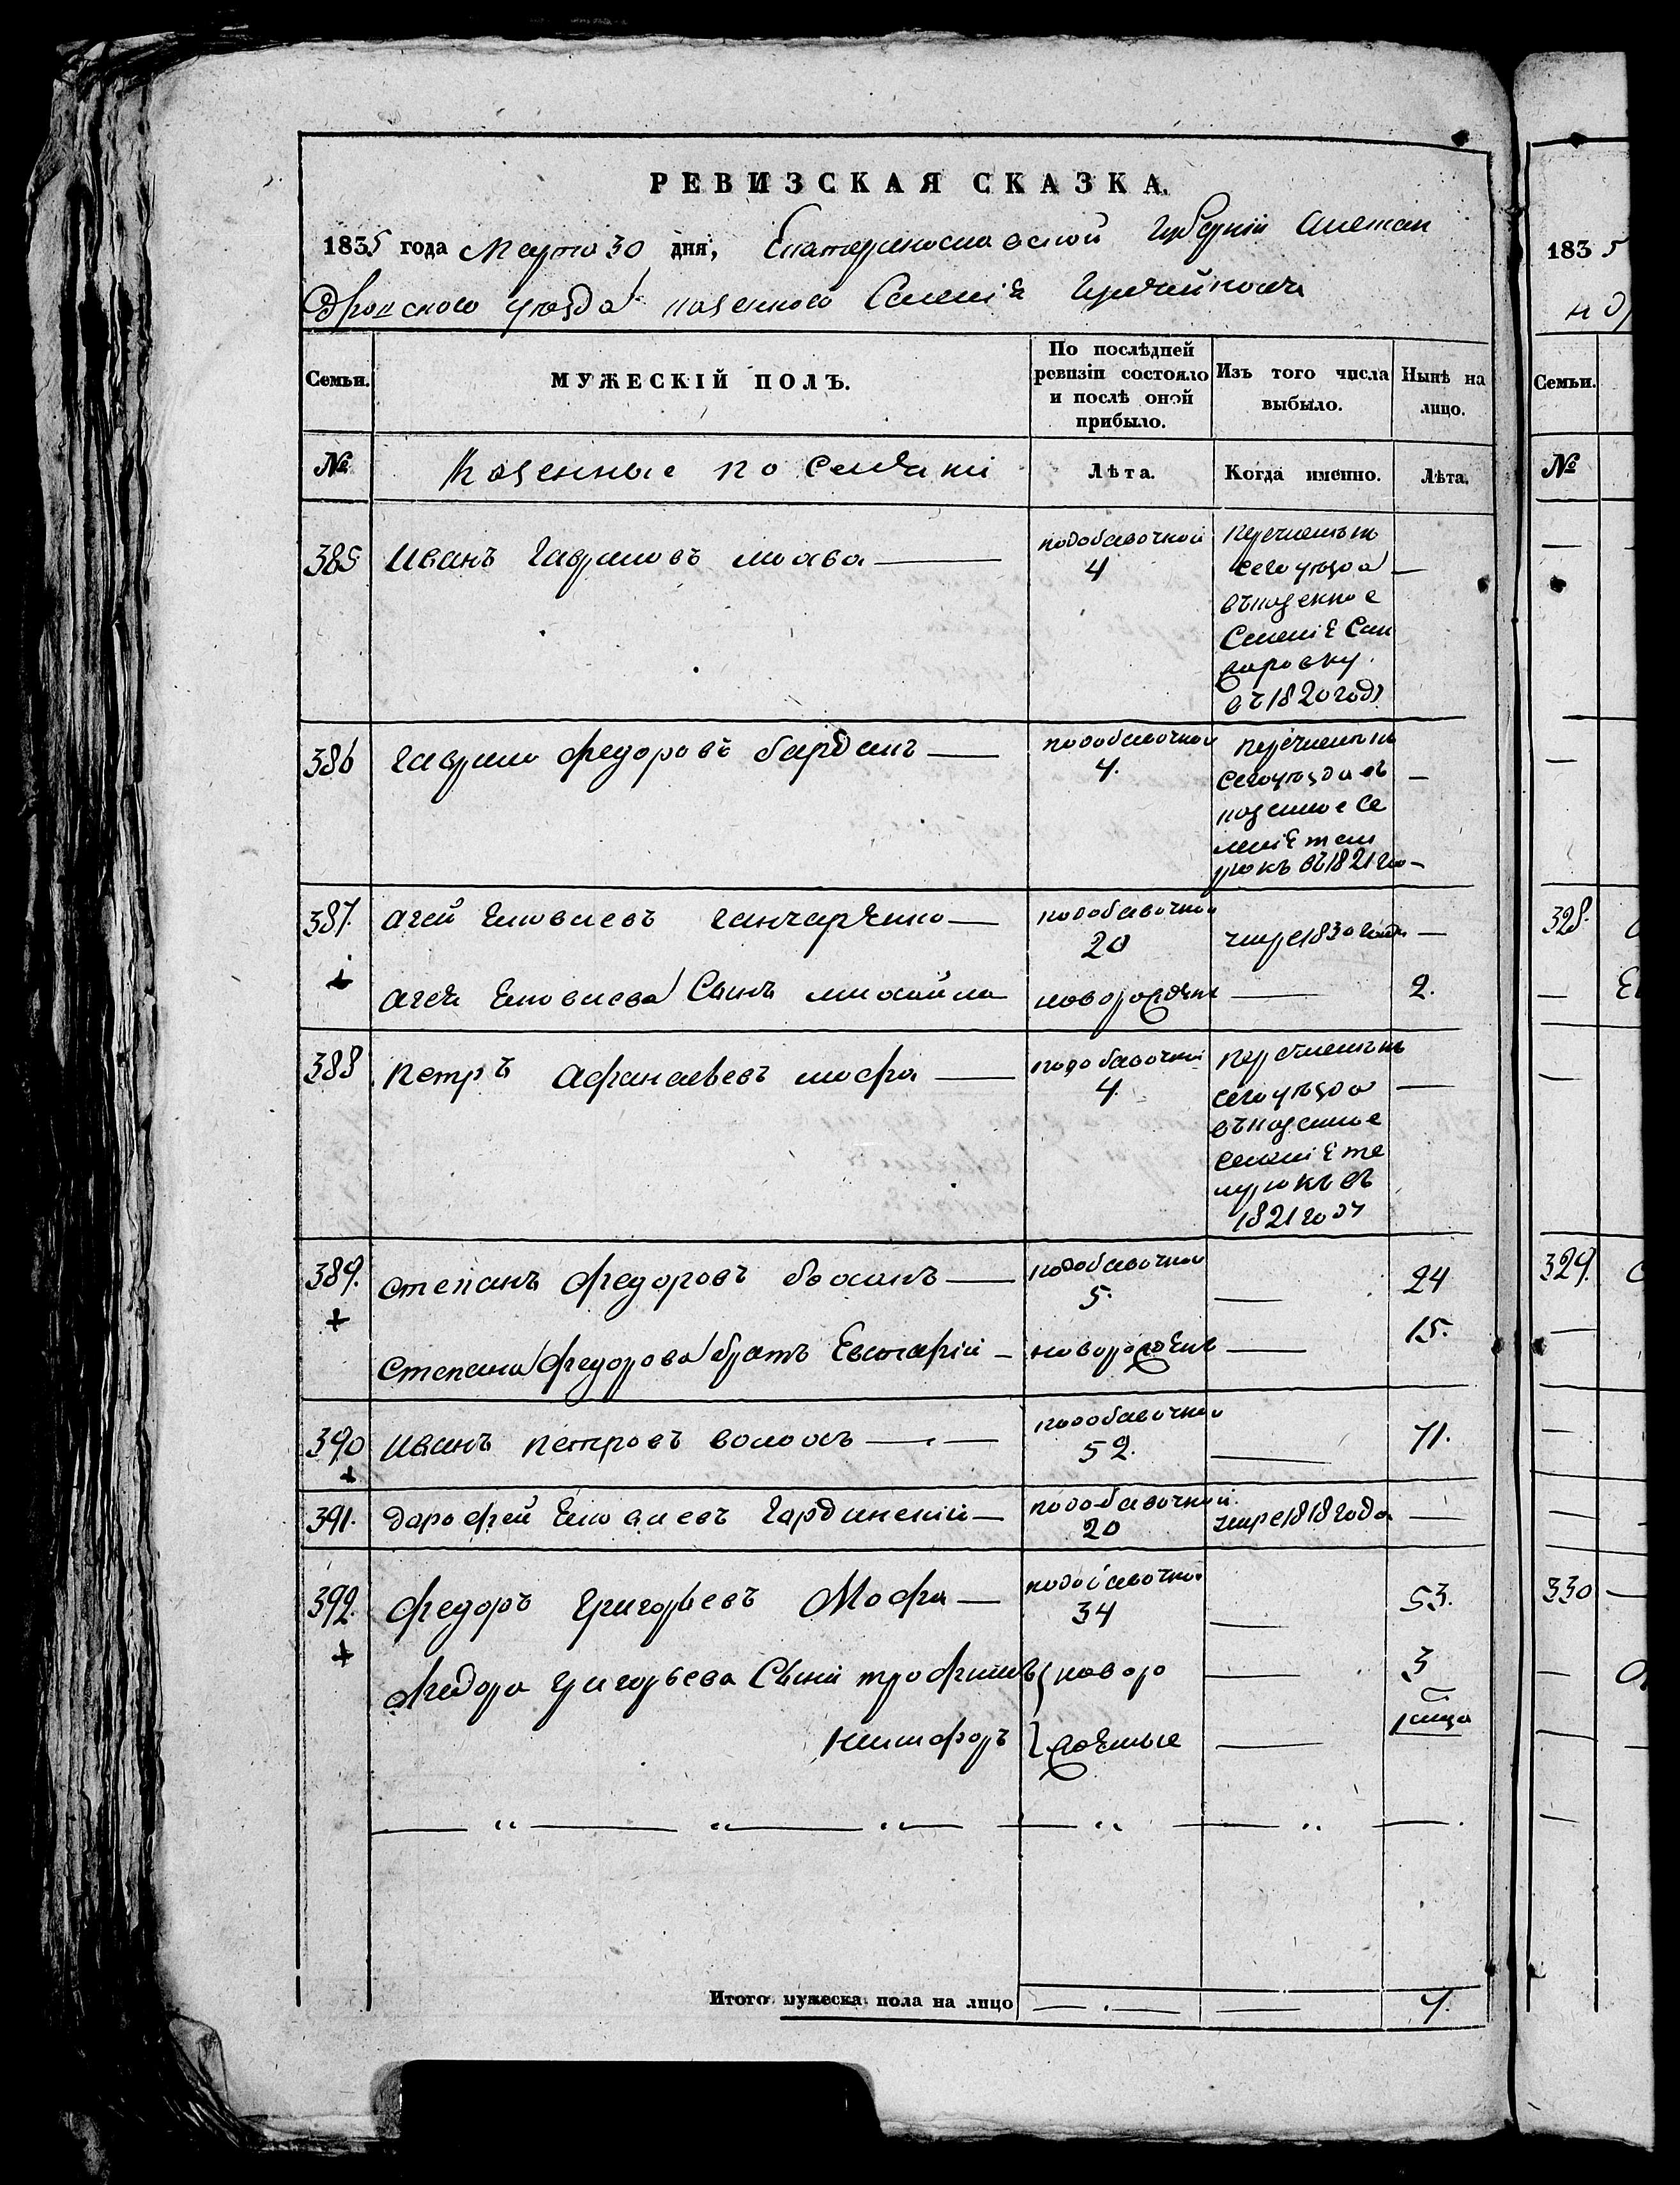 РЕВИЗСКАЯ СКАЗКА.
1835 года Марта 30 дня, Екатеринославской губерніи Алексан
дровскаго уезда казенного Селенія
Семьи.
МУЖЕСКІЙ ПОЛЪ.
По послѣдней
ревизіи состояло
и послѣ оной
прибыло.
Изъ того числа
выбыло.
Нынѣ на
лицо.
№
Казенные поселяни
Лѣта.
Когда именно.
Лѣта.
385
Иванъ Гавриловъ —
подобавочной
4
перечисленъ
сего уезда
въ казенное
Селеніе
въ 1820 году
—
386
Гаврило Федоровъ —
подобавочной
4.
перечисленъ
сего уезда въ
казенное Се
леніе тем
рюкъ въ 1821 го
—
387.
Агей Еловлевъ Ганчаренко —
подобавочной
20
умре 1830 года
—
+
Агея Еловлева Сынъ михайла
новорожденъ
—
2.
388
Петръ Афанасьевъ —
подобавочной
4.
перечисленъ
сего уезда
въ казенное
селеніе те
мрюкъ въ
1821 году
—
389.
Степанъ Федоровъ —
подобавочной
5.
—
24
+
Степана Федорова братъ Евстафій —
новорожденъ
—
15.
390
+
Иванъ Петровъ волохъ —
подобавочной
52.
—
71.
391.
Дарофей Еловлевъ —
подобавочной
20
умре 1818 года
—
392.
Федоръ Григорьевъ —
подобавочной
34
—
53.
+
Федора Григорьева Сыни трофимъ
новоро
—
3
Никифоръ
жденые
—
Итого мужеска пола на лицо
—
—
7.
1835
Семьи.
№
328.
329.
330